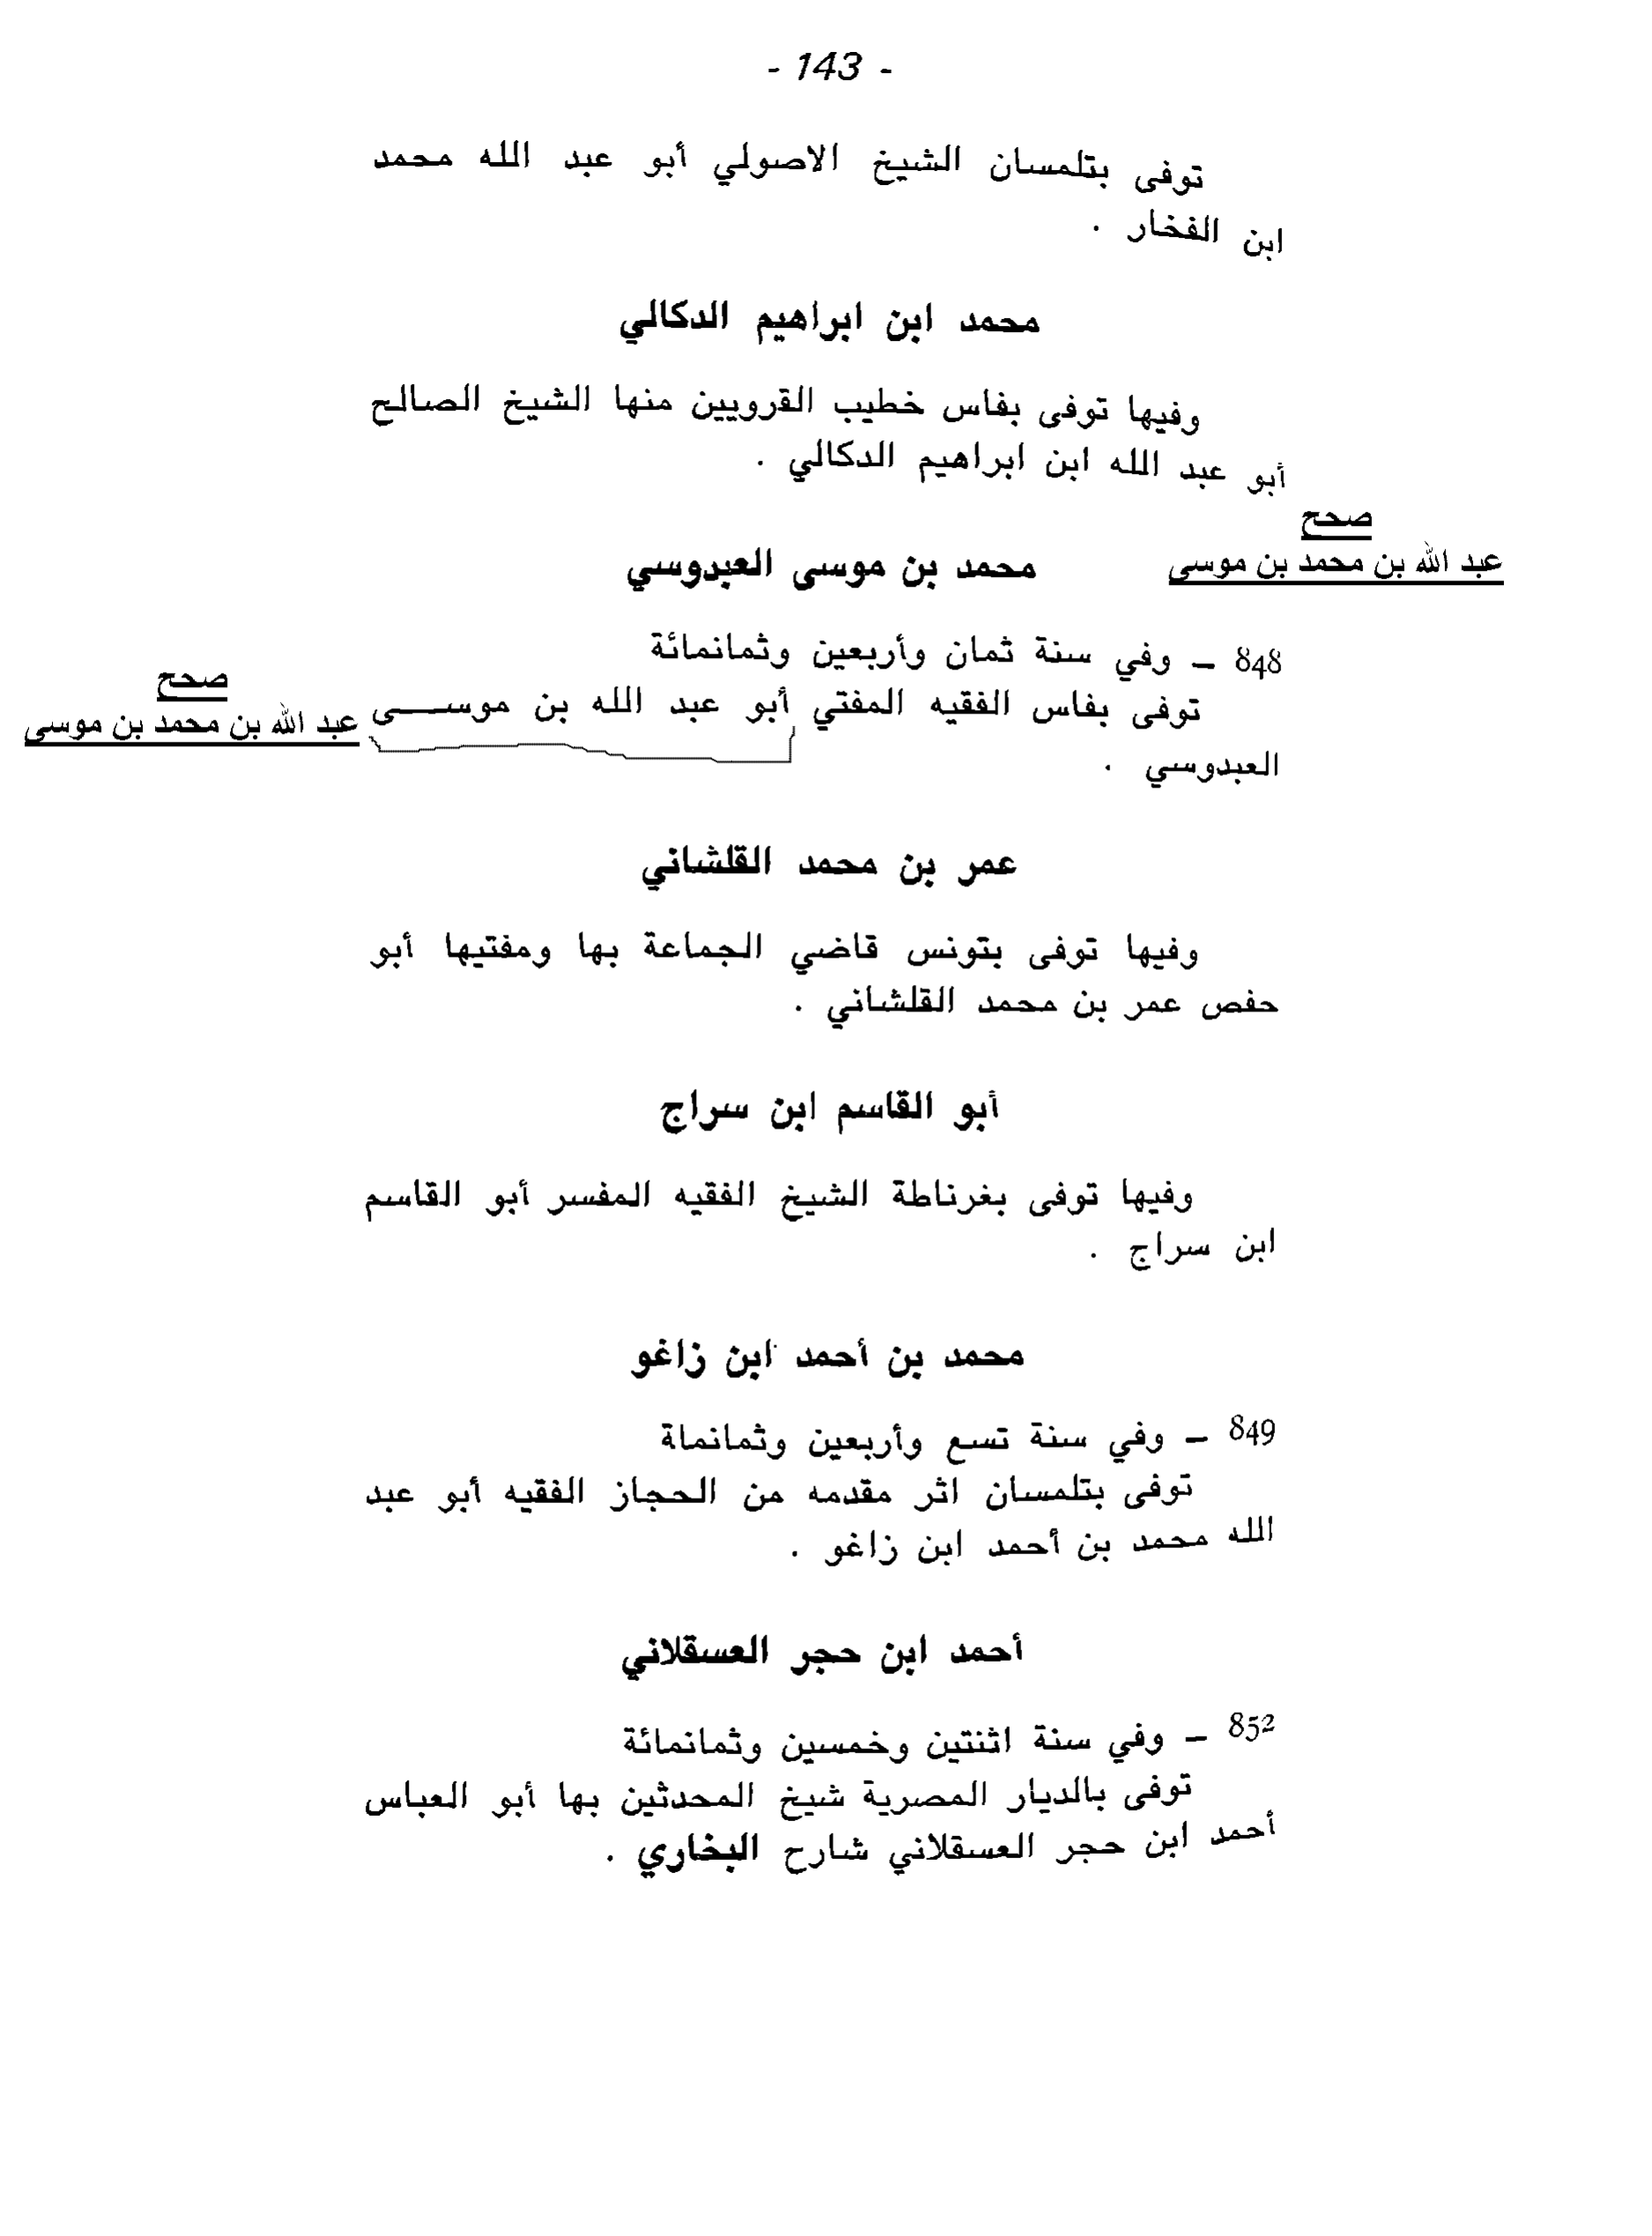 - 143 -
توفى بتلمسان الشيخ الاصولي أبو عبد الله محمد
ابن الفخار .
محمد ابن ابراهيم الدكالي
وفيها توفى بفاس خطيب القرويين منها الشيخ الصالح
أبو عبد الله ابن ابراهيم الدكالي .
صحح
عبد الله بن محمد بن موسى
محمد بن موسى العبدوسي
848 – وفي سنة ثمان وأربعين وثمانمائة
توفى بفاس الفقيه المفتي أبو عبد الله بن موســـى
صحح
عبد الله بن محمد بن موسى
العبدوسي .
عمر بن محمد القلشاني
وفيها توفى بتونس قاضي الجماعة بها ومفتيها أبو
حفص عمر بن محمد القلشاني .
أبو القاسم ابن سراج
وفيها توفى بغرناطة الشيخ الفقيه المفسر أبو القاسم
ابن سراج .
محمد بن أحمد ابن زاغو
849 – وفي سنة تسع وأربعين وثمانماة
توفى بتلمسان اثر مقدمه من الحجاز الفقيه أبو عبد
الله محمد بن أحمد ابن زاغو .
أحمد ابن حجر العسقلاني
852 – وفي سنة اثنتين وخمسين وثمانمائة
توفى بالديار المصرية شيخ المحدثين بها أبو العباس
أحمد ابن حجر العسقلاني شارح البخاري .